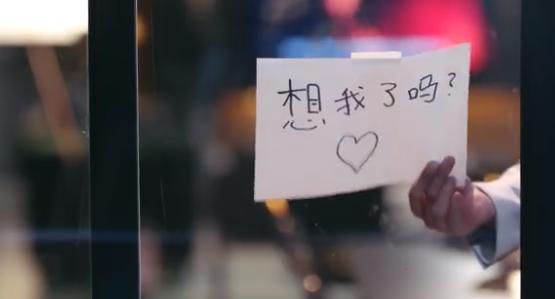 想我了吗?